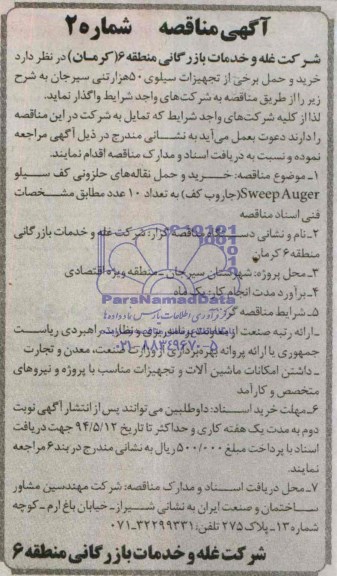 آگهی مناقصه شماره ۲
شرکت غله و خدمات بازرگانی منطقه ۶ (کرمان) در نظر دارد
خرید و حمل برخی از تجهیزات سیلوی ۵۰هزارتنی سیرجان به شرح
زیر را از طریق مناقصه به شرکت‌های واجد شرایط واگذار نماید.
لذا از کلیه شرکت‌های واجد شرایط که تمایل به شرکت در این مناقصه
را دارند دعوت بعمل می‌آید به نشانی مندرج در ذیل آگهی مراجعه
نموده و نسبت به دریافت اسناد و مدارک مناقصه اقدام نمایند.
۱-موضوع مناقصه: خرید و حمل نقاله‌های حلزونی کف سیلو
Sweep Auger(جاروب کف) به تعداد ۱۰ عدد مطابق مشخصات
فنی اسناد مناقصه
۲-نام و نشانی دستگاه مناقصه گزار: شرکت غله و خدمات بازرگانی
منطقه ۶ کرمان
۳-محل پروژه: شهرستان سیرجان-منطقه ویژه اقتصادی
۴-برآورد مدت انجام کار: یک ماه
ParsNamadData
۵-شرایط مناقصه گر:
-ارائه رتبه صنعت از معاونت برنامه‌ریزی و نظارت راهبردی ریاست
۰۲۱-۸۸۳۴۹۶۷۰-۵
جمهوری یا ارائه پروانه بهره‌برداری از وزارت صنعت، معدن و تجارت
-داشتن امکانات ماشین آلات و تجهیزات مناسب با پروژه و نیروهای
متخصص و کارآمد
۶-مهلت خرید اسناد: داوطلبین می‌توانند پس از انتشار آگهی نوبت
دوم به مدت یک هفته کاری و حداکثر تا تاریخ ۹۴/۵/۱۲ جهت دریافت
اسناد با پرداخت مبلغ ۵۰۰/۰۰۰ ریال به نشانی مندرج در بند ۶ مراجعه
نمایند.
۷-محل دریافت اسناد و مدارک مناقصه: شرکت مهندسین مشاور
ساختمان و صنعت ایران به نشانی شیراز-خیابان باغ ارم-کوچه
شماره ۱۳-پلاک ۲۷۵ تلفن: ۳۲۲۹۹۳۳۱-۰۷۱
شرکت غله و خدمات بازرگانی منطقه ۶